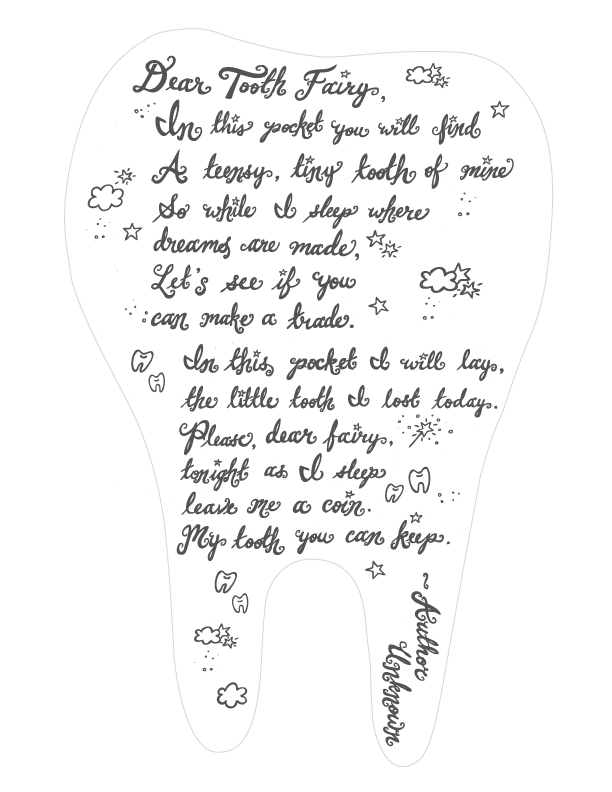 Dear Tooth Fairy,
In this pocket you will find
A teensy, tiny tooth of mine
So while I sleep where
dreams are made,
Let's see if you
can make a trade.
In this pocket I will lay,
the little tooth I lost today.
Please, dear fairy,
tonight as I sleep
leave me a coin.
My tooth you can keep.
~Author
Unknown